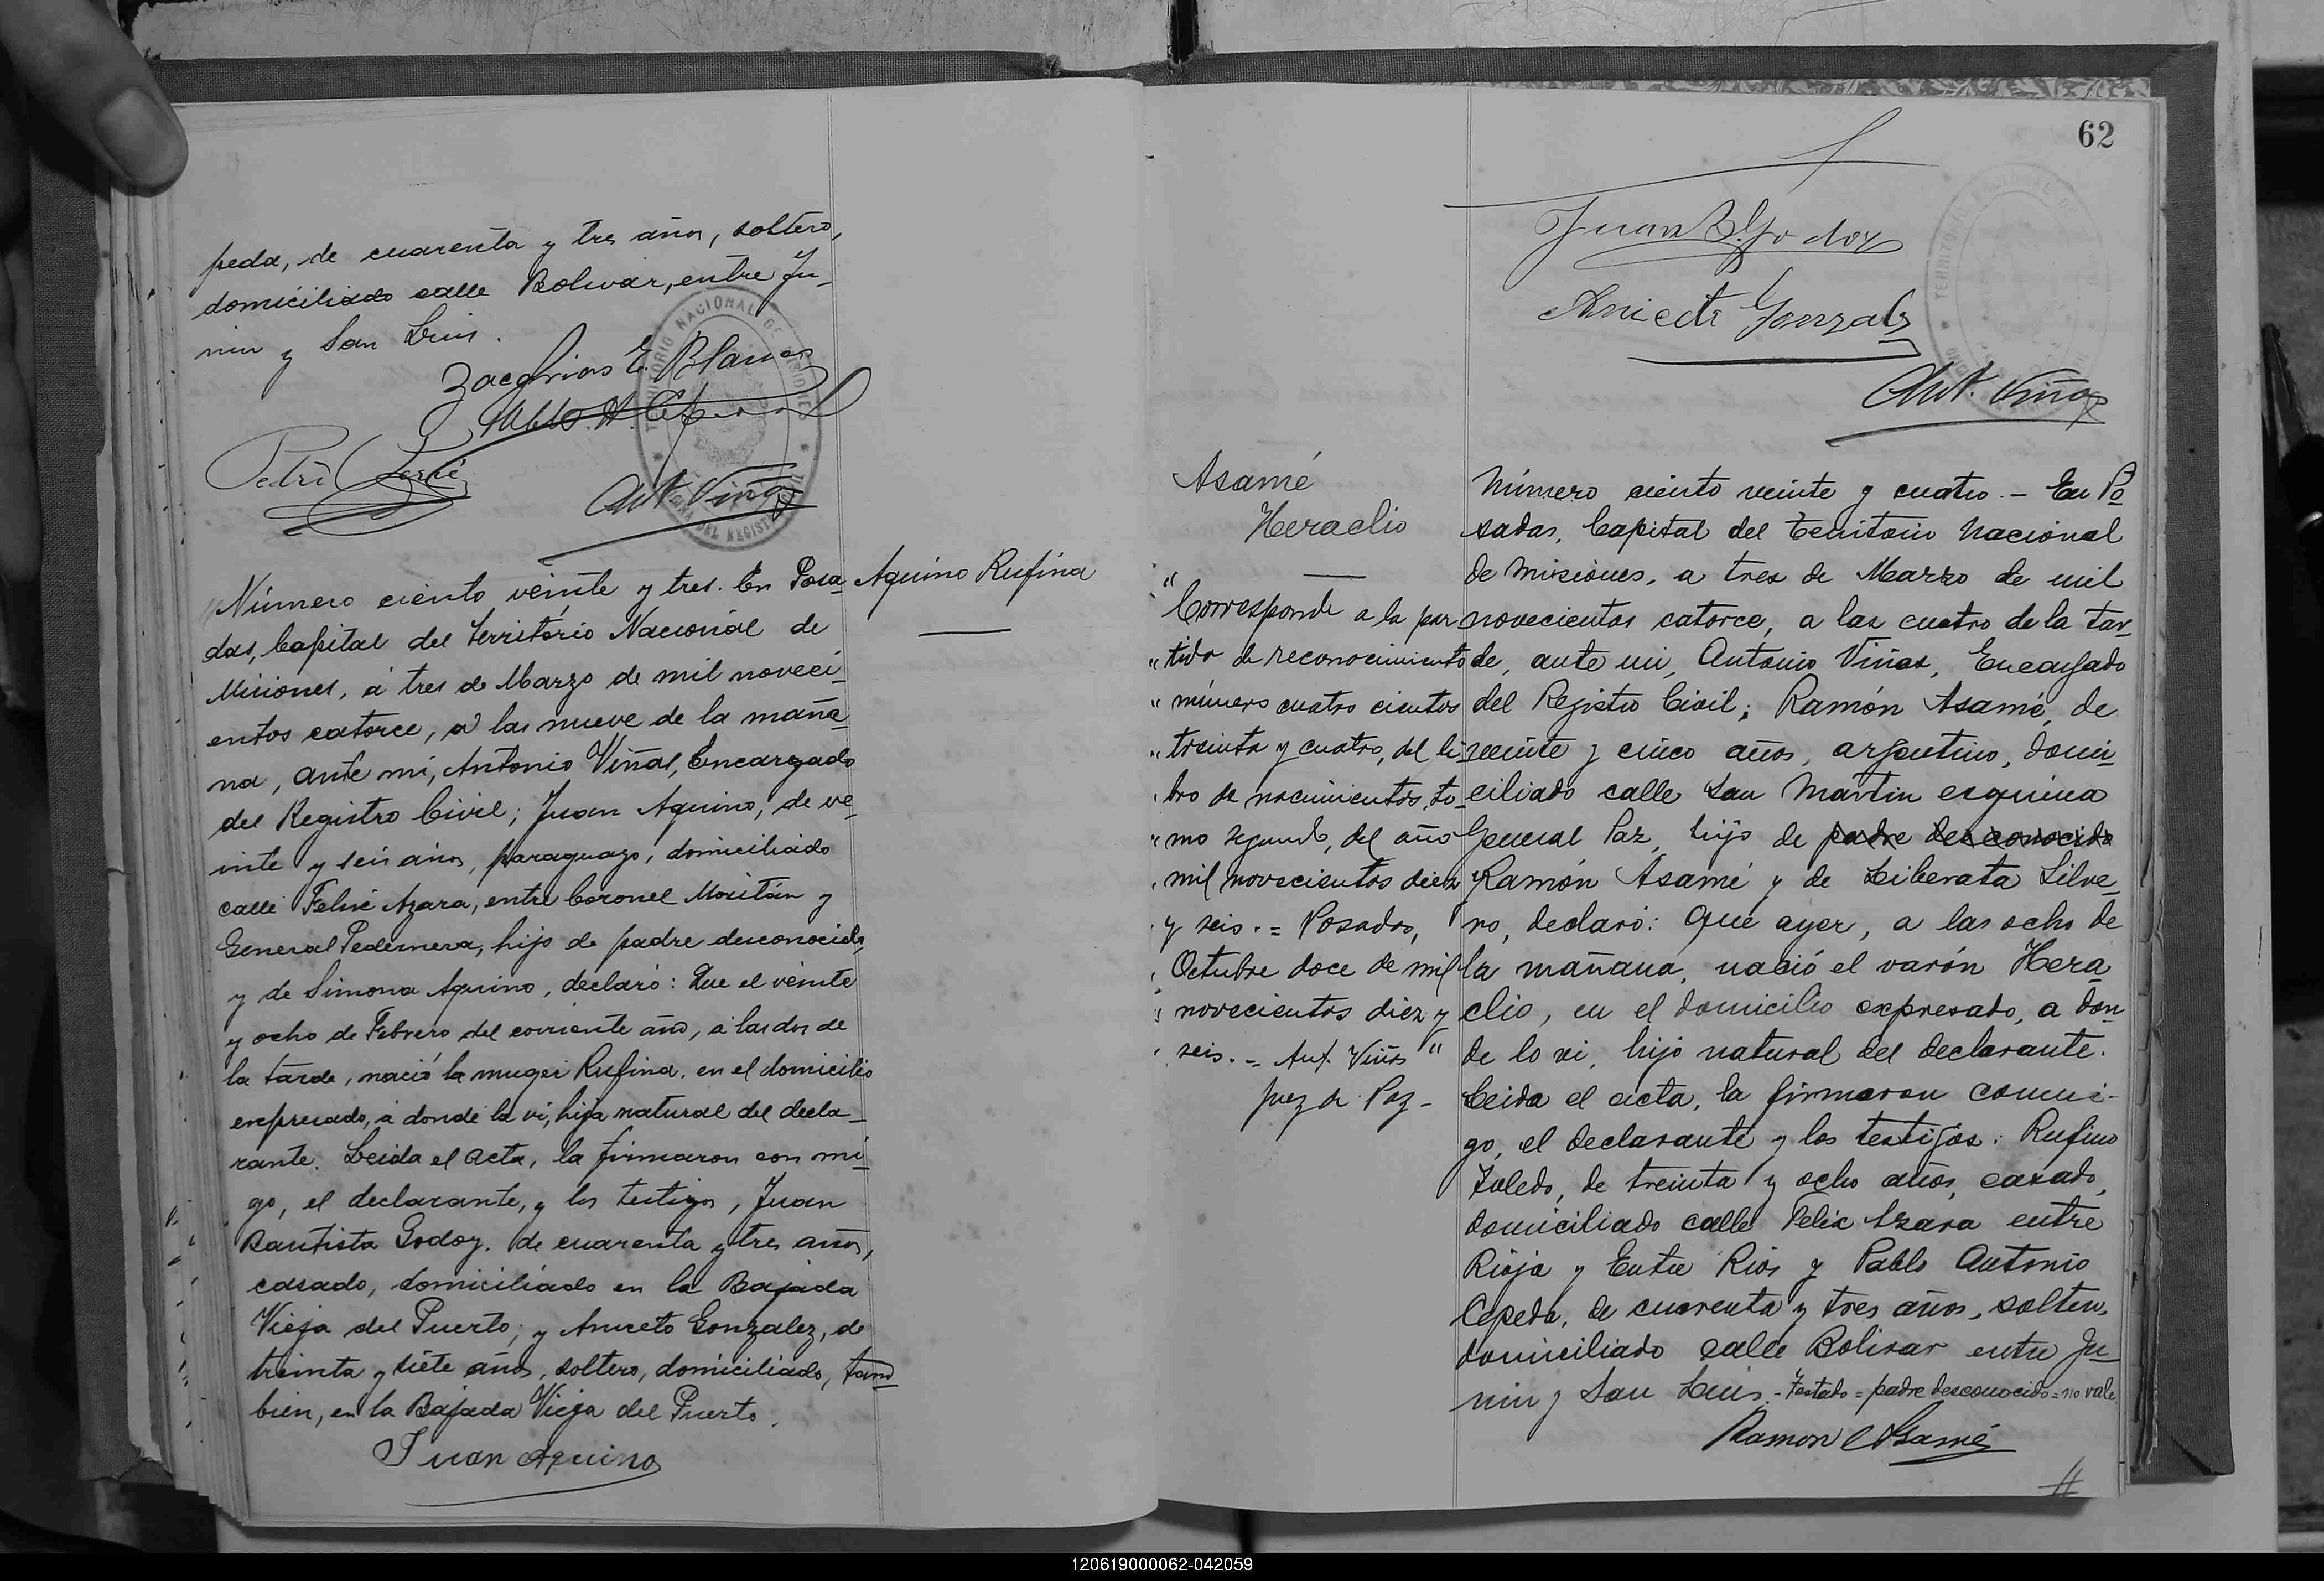 peda, de cuarenta y tres años, soltero,
domiciliado calle Bolivar, entre Ju-
nin y San Luis.
Zacarias E. Blanco
Pedro
Ant. Viñas
TERRITORIO NACIONAL DE MISIONES
DEL REGISTRO
Número ciento veinte y tres. En Posa-
das, Capital del Territorio Nacional de
Misiones, á tres de Marzo de mil noveci-
entos catorce, a las nueve de la maña-
na, ante mi, Antonio Viñas, Encargado
del Registro Civil; Juan Aquino, de ve-
inte y seis años, paraguayo, domiciliado
calle Felix Azara, entre Coronel Moritán y
General Pedernera, hijo de padre desconocido
y de Simona Aquino, declaró: Que el veinte
y ocho de Febrero del corriente año, a las dos de
la tarde, nació la muger Rufina, en el domicilio
expresado, á donde la vi, hija natural del decla-
rante. Leida el acta, la firmaron con mi-
go, el declarante, y los testigos, Juan
Bautista Godoy, de cuarenta y tres años,
casado, domiciliado en la Bajada
Vieja del Puerto; y Aniceto Gonzalez, de
treinta y siete años, soltero, domiciliado, tam-
bien, en la Bajada Vieja del Puerto.
Juan Aquino
Aquino Rufina
62
Juan B. Godoy
Aniceto Gonzalez
Ant. Viñas
Asamé
Heraclio
"Corresponde a la par-
" tida de reconocimiento
" número cuatro cientos
" treinta y cuatro, del li-
" bro de nacimientos, to-
" mo segundo, del año
" mil novecientos diez
" y seis. = Posadas,
" Octubre doce de mil
" novecientos diez y
" seis. = Ant. Viñas "
Juez de Paz -
Número ciento veinte y cuatro. - En Po-
sadas, Capital del Territorio Nacional
de Misiones, a tres de Marzo de mil
novecientos catorce, a las cuatro de la tar-
de, ante mi, Antonio Viñas, Encargado
del Registro Civil; Ramón Asamé, de
veinte y cinco años, argentino, domi-
ciliado calle San Martin esquina
General Paz, hijo de padre desconocido
Ramón Asamé y de Liberata Silve-
ro, declaró: Que ayer, a las ocho de
la mañana, nació el varón Hera-
clio, en el domicilio expresado, a don-
de lo vi, hijo natural del declarante.
Leida el acta, la firmaron conmi-
go, el declarante y los testigos: Rufino
Toledo, de treinta y ocho años, casado,
domiciliado calle Felix Azara entre
Rioja y Entre Rios y Pablo Antonio
Cepeda, de cuarenta y tres años, soltero,
domiciliado calle Bolivar entre Ju-
nin y San Luis. - Testado = padre desconocido = no vale.
Ramon Asamé
//
120619000062-042059